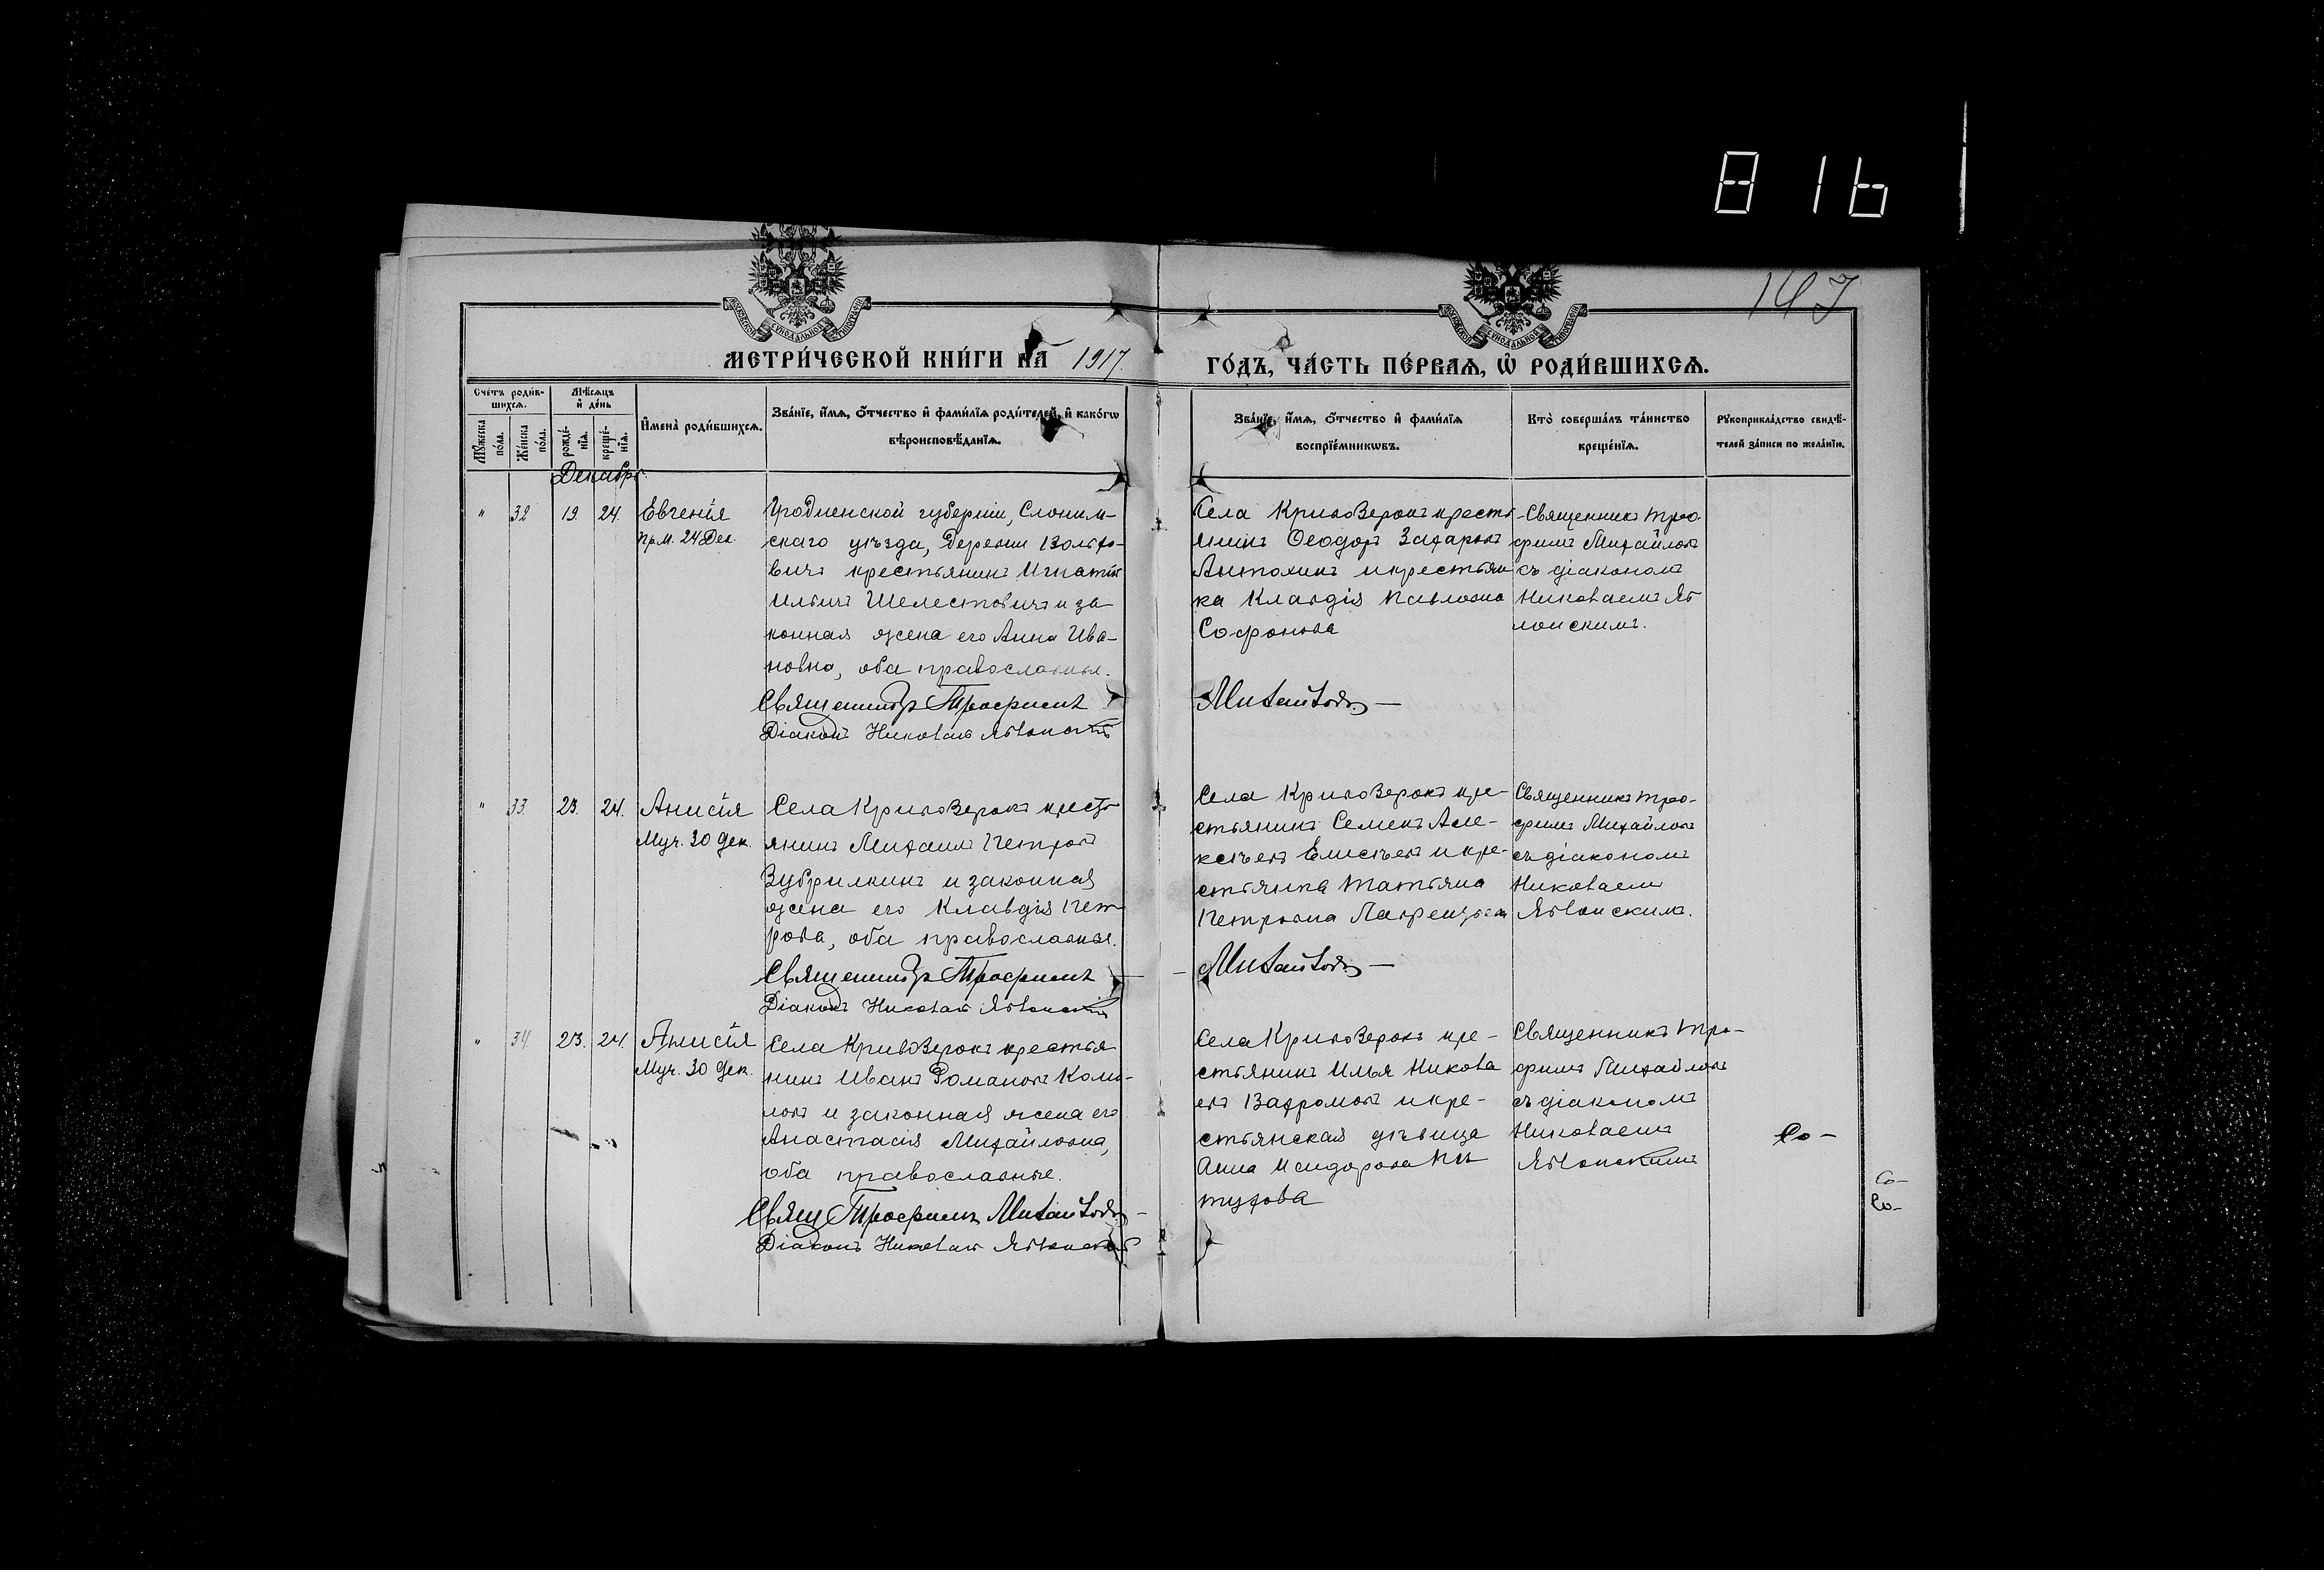 816
147
МЕТРИ́ЧЕСКОЙ КНИ́ГИ НА 1917.
ГО́ДЪ, ЧА́СТЬ ПЕ́РВАѦ, Ѡ҆ РОДИ́ВШИХСѦ.
Сче́тъ роди́в-
шихсѧ.
Мѣ́сѧцъ
и҆ де́нь
Мꙋ́жеска
по́ла.
Же́нска
по́ла.
рожде́-
нїѧ.
креще́-
нїѧ.
И҆мена̀ роди́вшихсѧ.
Зва́нїе, и҆́мѧ, ѻ҆́тчество и҆ фами́лїѧ роди́телей, и҆ како́гѡ
вѣроисповѣ́данїѧ.
Зва́нїе, и҆́мѧ, ѻ҆́тчество и҆ фами́лїѧ
воспрїе́мникѡвъ.
Кто̀ соверша́лъ та́инство
креще́нїѧ.
Рꙋкоприкла́дство свидѣ́-
телей за́писи по жела́нїю.
Декабрь
" 32 19. 24. Евгенія
Пр.м. 24 Дек.
Гродненской губерніи, Слоним-
скаго уѣзда, деревни
вичъ крестьянинъ Игнатій
Ильичъ Шелестовичъ и за-
конная жена его Анна Ива-
новна, оба православные.
Священникъ Трофимъ
Діаконъ Николай Яблонскій
Села Кривозерокъ кресть-
янинъ Ѳеодоръ Захаровъ
Антохинъ и крестьян
ка Клавдія Павловна
Софронова
Михайловъ —
Священникъ Тро-
фимъ Михайловъ
съ діакономъ
Николаемъ Яб
лонскимъ.
" 33. 23. 24. Анисія
Муч. 30 дек.
Села Кривозерокъ кресть
янинъ Михаилъ Петровъ
Зубрилкинъ и законная
жена его Клавдія Пет-
рова, оба православные.
Священникъ Трофимъ
Діаконъ Николай Яблонскій
Села Кривозерокъ кре-
стьянинъ Семенъ Але-
ксѣевъ Елисѣевъ и кре-
стьянка Татьяна
Петровна Лаврентьева
— Михайловъ —
Священникъ Тро-
фимъ Михайловъ
съ діакономъ
Николаемъ
Яблонскимъ.
" 34 23. 24. Анисія
Муч. 30 дек.
Села Кривозерокъ крестья
нинъ Иванъ Романовъ
ловъ и законная жена его
Анастасія Михайловна,
оба православные.
Свящ Трофимъ Михайловъ —
Діаконъ Николай Яблонскій
Села Кривозерокъ кре-
стьянинъ Илья Никола
евъ и кре-
стьянская дѣвица
Анна Исидорова Пѣ
тухова
Священникъ Тро-
фимъ Михайловъ
съ діакономъ
Николаемъ
Яблонскимъ
Со —
Со —
Со —